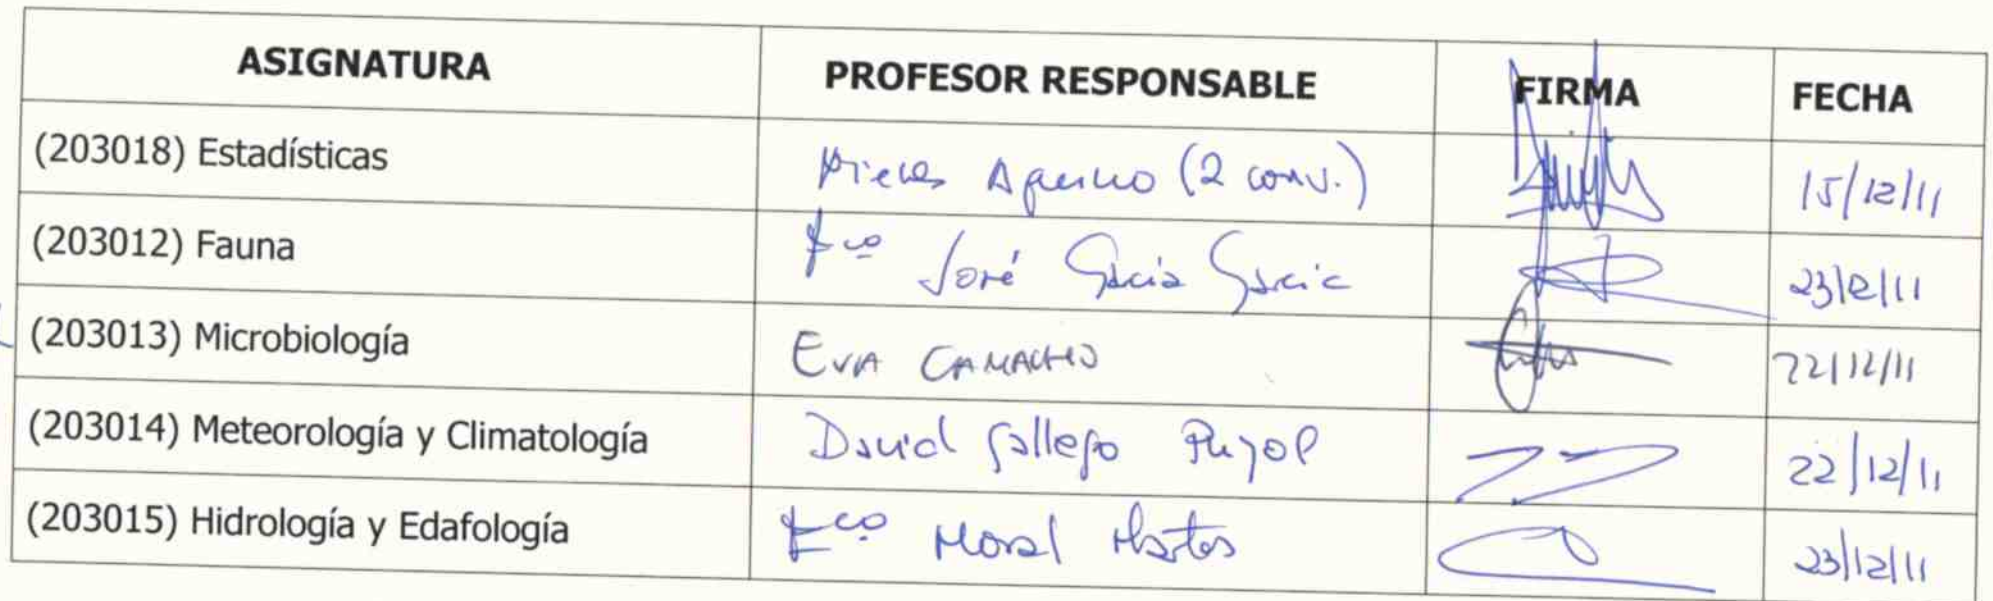 ASIGNATURA PROFESOR RESPONSABLE FIRMA FECHA
(203018) Estadísticas Nieves Aquino (2 conv.) 15/12/11
(203012) Fauna Fco José García García 23/12/11
(203013) Microbiología EVA CAMACHO 22/12/11
(203014) Meteorología y Climatología David Gallego Puyol 22/12/11
(203015) Hidrología y Edafología Fco Moral Martos 23/12/11